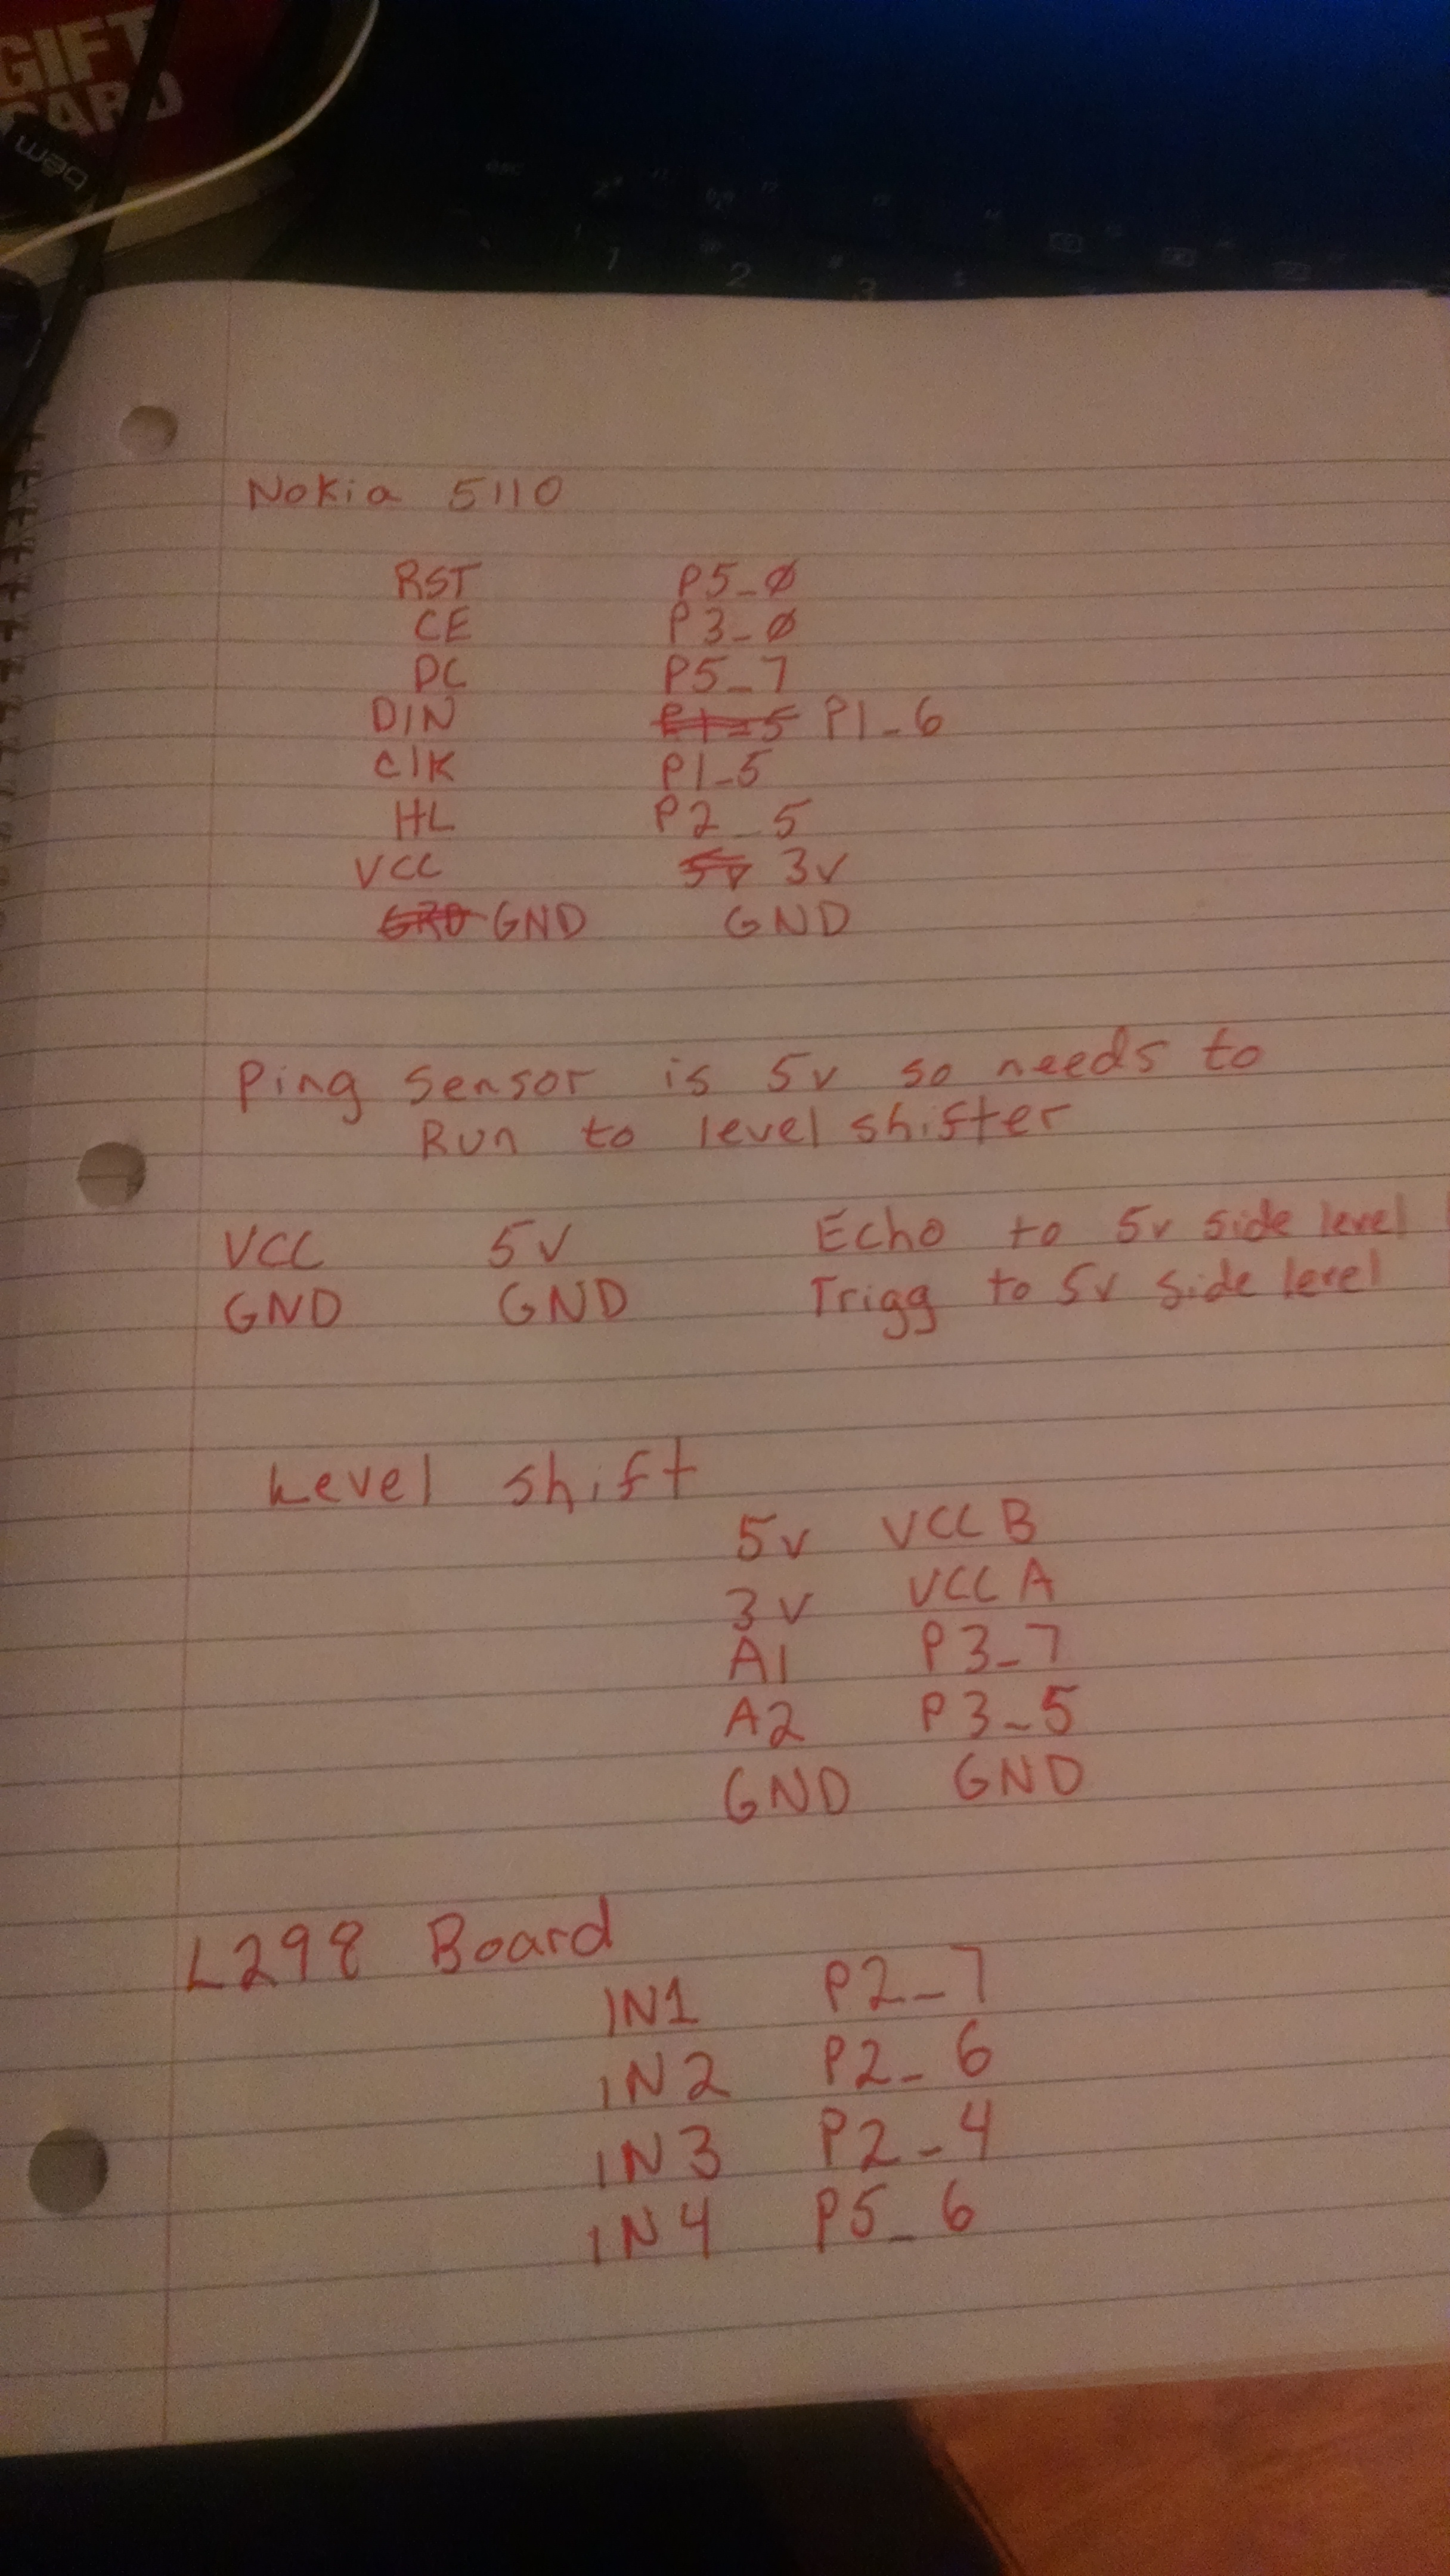 GIFT
CARD
bem
1 2 3
Nokia 5110
RST P5_Ø
CE P3_Ø
DC P5_7
DIN P1_5 P1_6
ClK P1_5
HL P2_5
VCC 5v 3v
GRD GND GND
Ping Sensor is 5v so needs to
Run to level shifter
VCC 5v Echo to 5v side level
GND GND Trigg to 5v side level
Level shift
5v VCC B
3v VCC A
A1 P3_7
A2 P3_5
GND GND
L298 Board
IN1 P2_7
IN2 P2_6
IN3 P2_4
IN4 P5_6